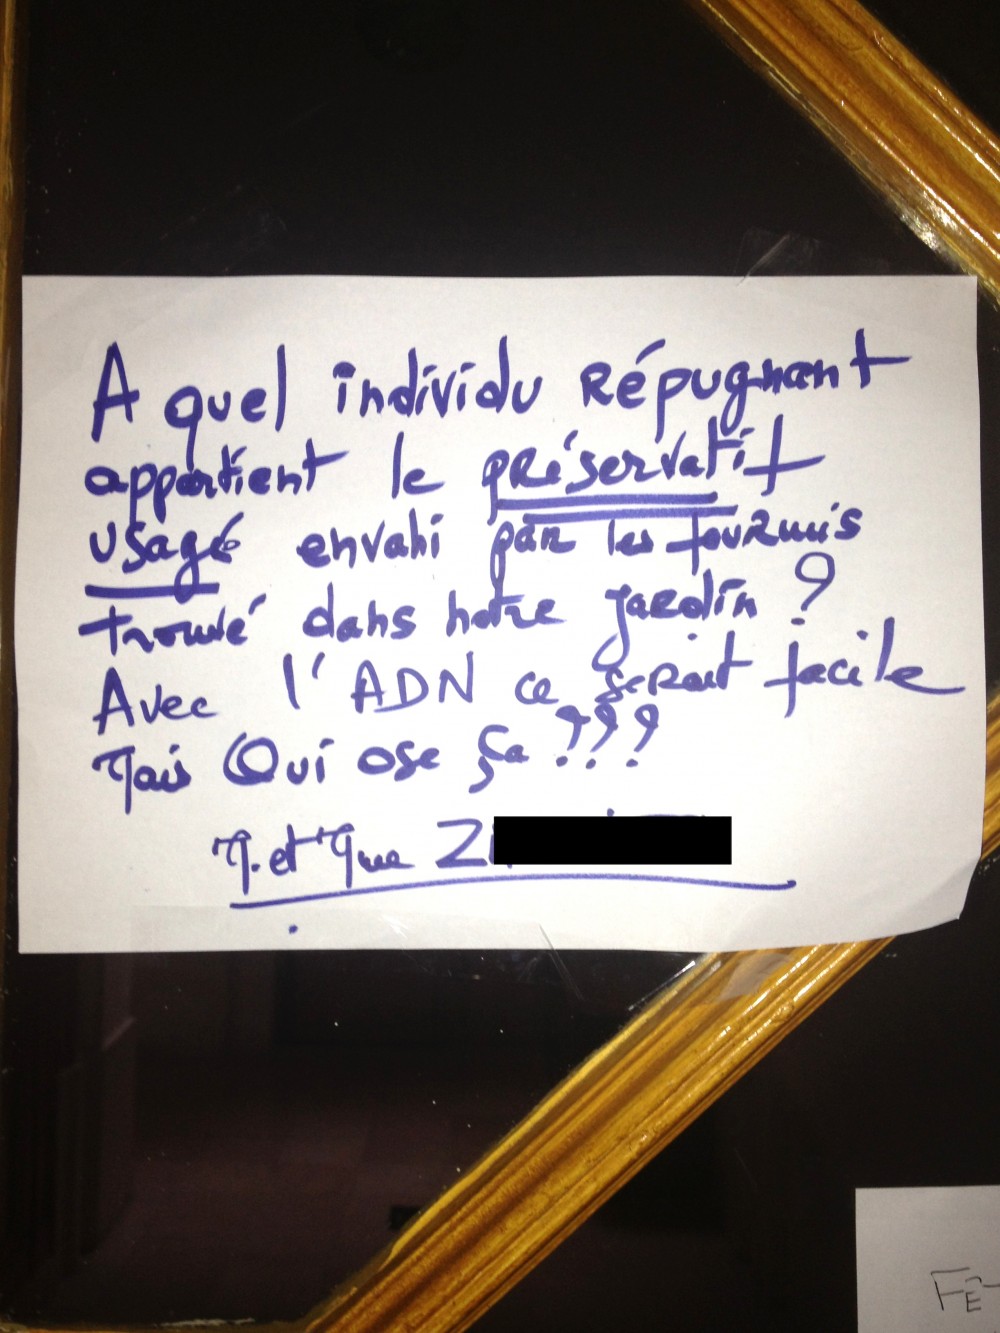 A quel individu Répugnant
appartient le préservatif
usagé envahi par les fourmis
trouvé dans notre jardin ?
Avec l'ADN ce serait facile
Mais Qui ose ça ???
M. et Mme Z
FE